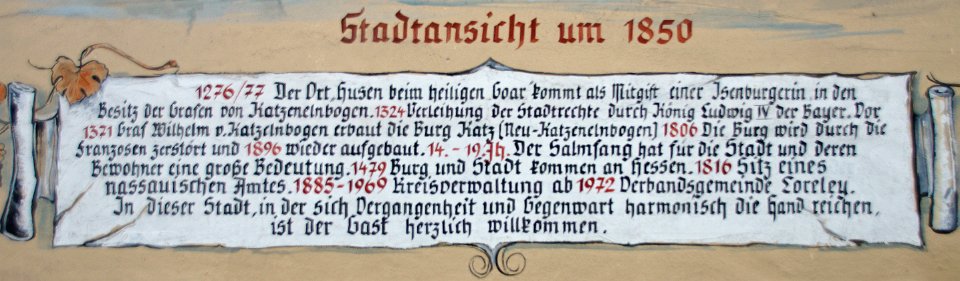 Stadtansicht um 1850
1276/77 Der Ort „Husen beim heiligen Goar" kommt als Mitgift einer Isenburgerin in den
Besitz der Grafen von Katzenelnbogen. 1324 Verleihung der Stadtrechte durch König Ludwig IV der Bayer. Vor
1371 Graf Wilhelm v. Katzelnbogen erbaut die Burg Katz (Neu-Katzenelnbogen) 1806 Die Burg wird durch die
Franzosen zerstört und 1896 wieder aufgebaut. 14. - 19. Jh. Der Salmfang hat für die Stadt und deren
Bewohner eine große Bedeutung. 1479 Burg und Stadt kommen an Hessen. 1816 Sitz eines
nassauischen Amtes. 1885-1969 Kreisverwaltung ab 1972 Verbandsgemeinde Loreley.
In dieser Stadt, in der sich Vergangenheit und Gegenwart harmonisch die Hand reichen,
ist der Gast herzlich willkommen.